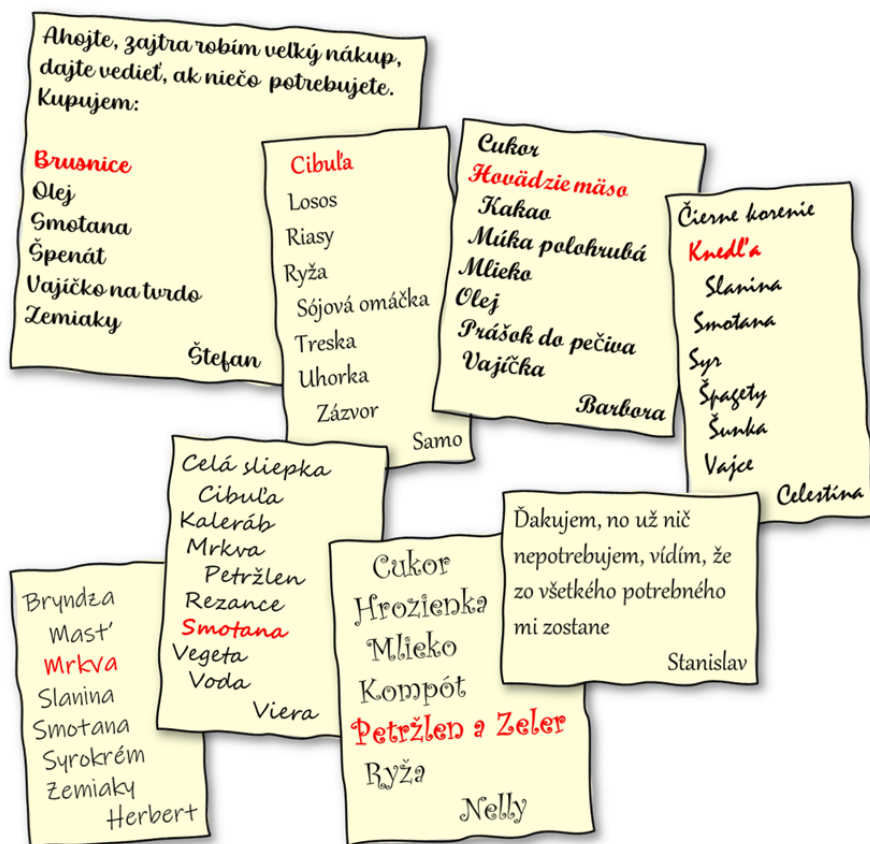 Ahojte, zajtra robím veľký nákup,
dajte vedieť, ak niečo potrebujete.
Kupujem:
Brusnice
Olej
Smotana
Špenát
Vajíčko na tvrdo
Zemiaky
Štefan
Cibuľa
Losos
Riasy
Ryža
Sójová omáčka
Treska
Uhorka
Zázvor
Samo
Cukor
Hovädzie mäso
Kakao
Múka polohrubá
Mlieko
Olej
Prášok do pečiva
Vajíčka
Barbora
Čierne korenie
Knedľa
Slanina
Smotana
Syr
Špagety
Šunka
Vajce
Celestína
Bryndza
Masť
Mrkva
Slanina
Smotana
Syrokrém
Zemiaky
Herbert
Celá sliepka
Cibuľa
Kaleráb
Mrkva
Petržlen
Rezance
Smotana
Vegeta
Voda
Viera
Cukor
Hrozienka
Mlieko
Kompót
Petržlen a Zeler
Ryža
Nelly
Ďakujem, no už nič
nepotrebujem, vídím, že
zo všetkého potrebného
mi zostane
Stanislav